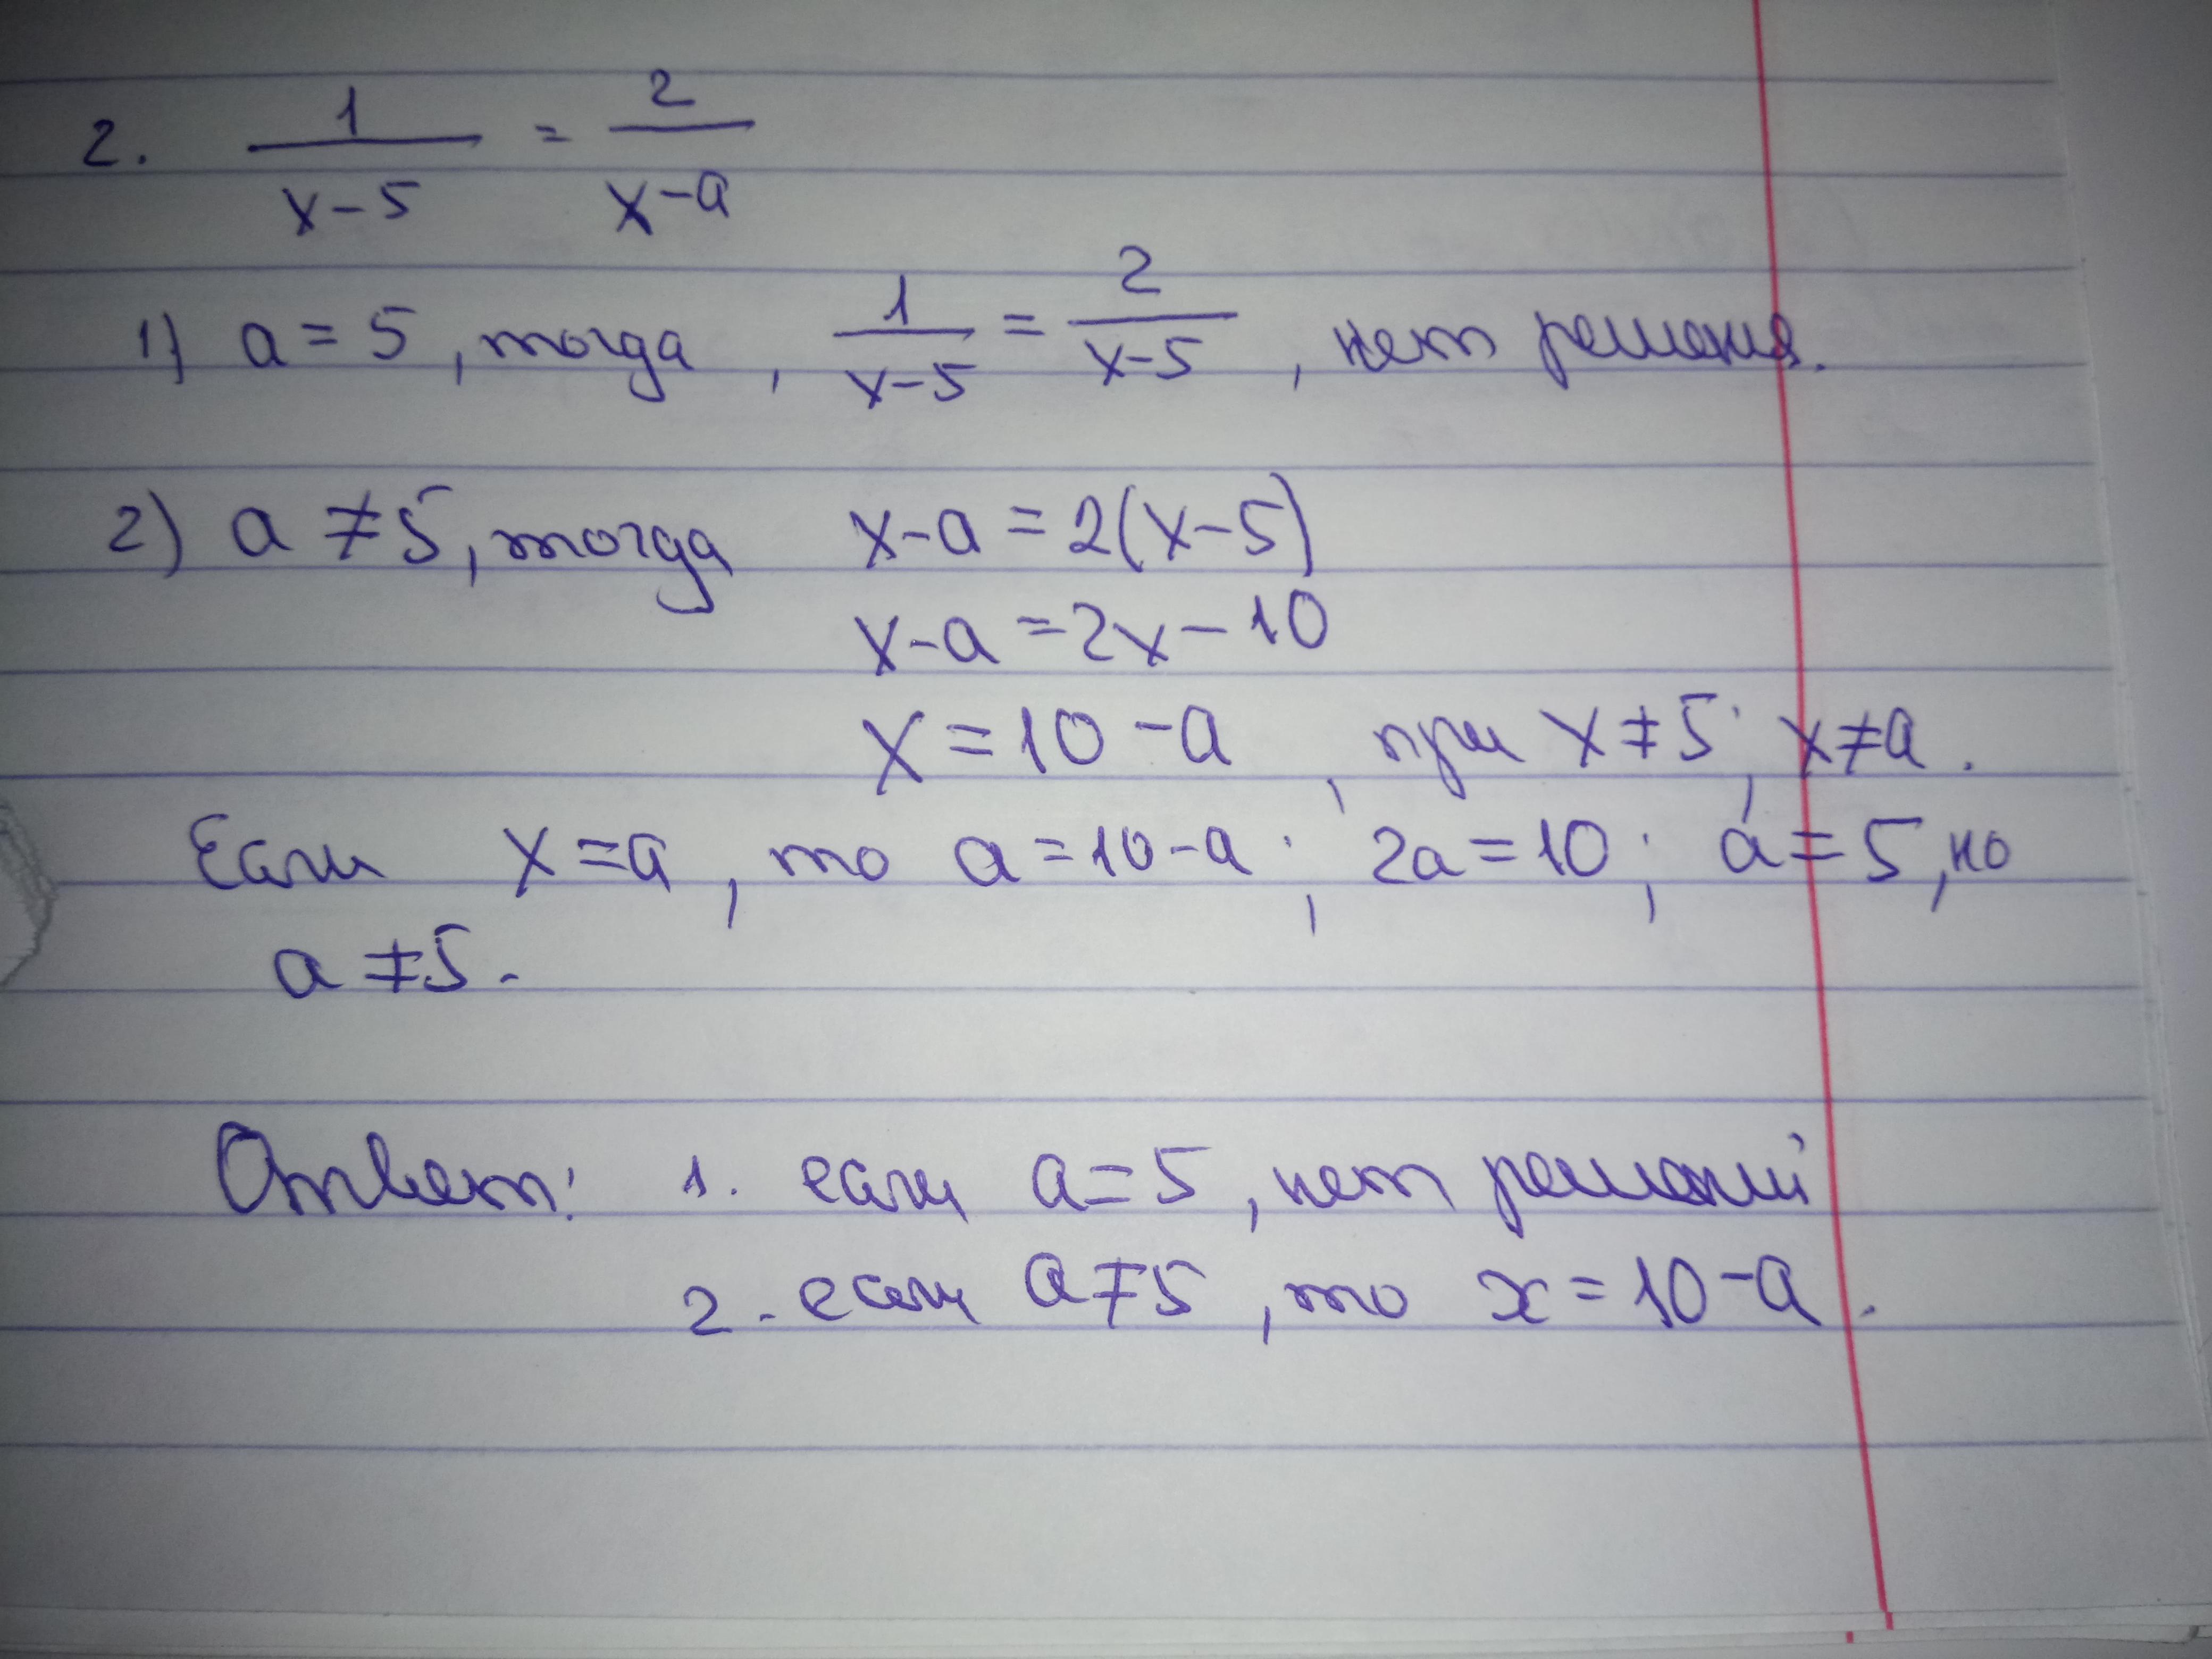 2. 1/(x-5) = 2/(x-a)
1) a = 5, тогда, 1/(x-5) = 2/(x-5), нет решения.
2) a ≠ 5, тогда x-a = 2(x-5)
x-a = 2x-10
x = 10-a, при x ≠ 5; x ≠ a.
Если x = a, то a = 10-a; 2a = 10; a = 5, но
a ≠ 5.
Ответ: 1. если a = 5, нет решений
2. если a ≠ 5, то x = 10-a.